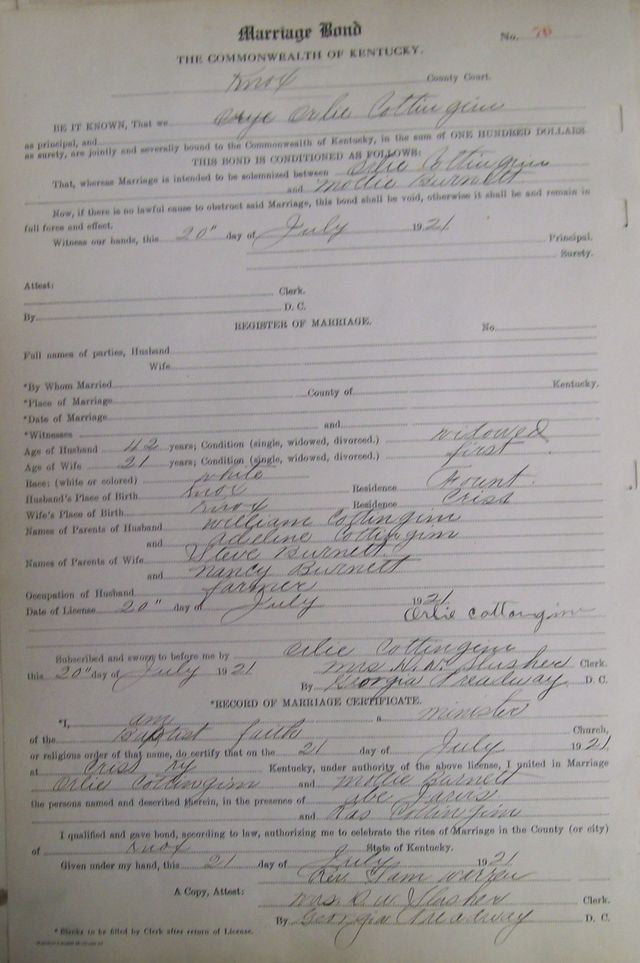 Marriage Bond
No. 76
THE COMMONWEALTH OF KENTUCKY.
Knox County Court.
BE IT KNOWN, That we Orlie Cottingim
as principal, and
as surety, are jointly and severally bound to the Commonwealth of Kentucky, in the sum of ONE HUNDRED DOLLARS
THIS BOND IS CONDITIONED AS FOLLOWS:
That, whereas Marriage is intended to be solemnized between Orlie Cottingim
and Mollie Burnett
Now, if there is no lawful cause to obstruct said Marriage, this bond shall be void, otherwise it shall be and remain in
full force and effect.
Witness our hands, this 20" day of July 1921
Principal.
Surety.
Attest:
Clerk.
By D. C.
REGISTER OF MARRIAGE.
No.
Full names of parties, Husband
Wife
*By Whom Married
*Place of Marriage County of Kentucky.
*Date of Marriage
*Witnesses and
Age of Husband 42 years; Condition (single, widowed, divorced.) widowed
Age of Wife 21 years; Condition (single, widowed, divorced.) first
Race: (white or colored) white
Husband's Place of Birth Knox Residence Fount.
Wife's Place of Birth Knox Residence Criss
Names of Parents of Husband William Cottingim
and Adeline Cottingim
Names of Parents of Wife Steve Burnett
and Nancy Burnett
Occupation of Husband farmer
Date of License 20" day of July 1921.
Orlie Cottongim
Subscribed and sworn to before me by Orlie Cottingim
this 20" day of July 1921 Mrs. Slusher Clerk.
By Georgia Treadway D. C.
*RECORD OF MARRIAGE CERTIFICATE.
*I, am a minister
of the Baptist faith Church,
or religious order of that name, do certify that on the 21 day of July 1921
at Criss Ky Kentucky, under authority of the above license, I united in Marriage
Orlie Cottingim and Mollie Burnett
the persons named and described therein, in the presence of Abe Jarvis
and Cottingim
I qualified and gave bond, according to law, authorizing me to celebrate the rites of Marriage in the County (or city)
of Knox State of Kentucky.
Given under my hand, this 21 day of July 1921
Rev. Sam Warren
A Copy, Attest: Mrs. Slusher Clerk.
By Georgia Treadway D. C.
*Blanks to be filled by Clerk after return of License.